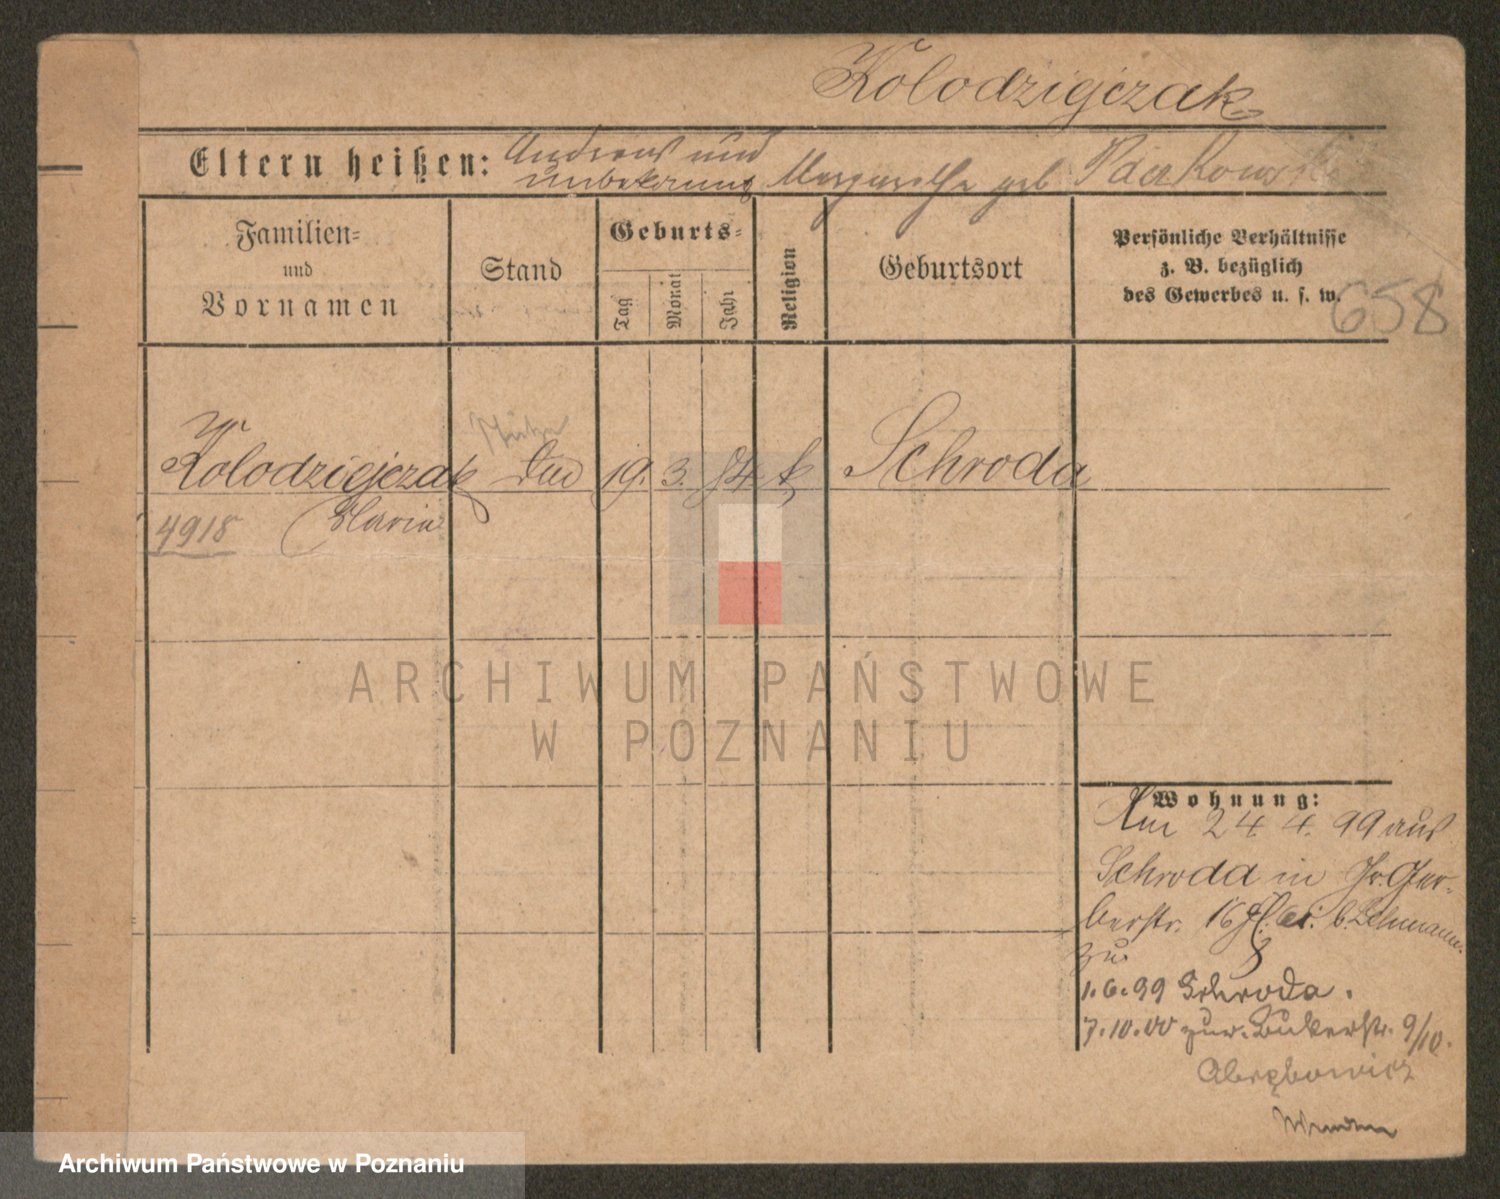 Kolodziejczak
Eltern heißen: Andreas und
unbekannt Margarethe geb
Familien-
und
Vornamen
Stand
Geburts-
Tag
Monat
Jahr
Religion
Geburtsort
Persönliche Verhältnisse
z. B. bezüglich
des Gewerbes u. s. w.
658
Kolodziejczak 19. 3. 84 k Schroda
4918 Maria
ARCHIWUM PAŃSTWOWE
W POZNANIU
Wohnung:
24. 4. 99 aus
Schroda in Gr. Ger-
berstr. 16 b. Lehmann.
zu
1.6.99 Schroda.
7.10.00 zur. Bukerstr. 9/10.
Archiwum Państwowe w Poznaniu